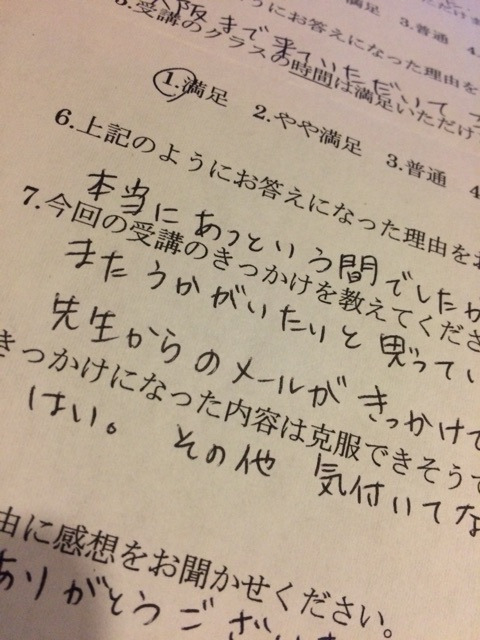 ようにお答えになった理由を
阪まで来ていただいて
5.受講のクラスの時間は満足いただけ
1.満足 2.やや満足 3.普通 4
6.上記のようにお答えになった理由をお
本当にあっという間でしたが
7.今回の受講のきっかけを教えてくださ
またうかがいたいと思ってい
先生からのメールがきっかけで
きっかけになった内容は克服できそうで
はい。 その他 気付いてな
由に感想をお聞かせください。
ありがとうござい